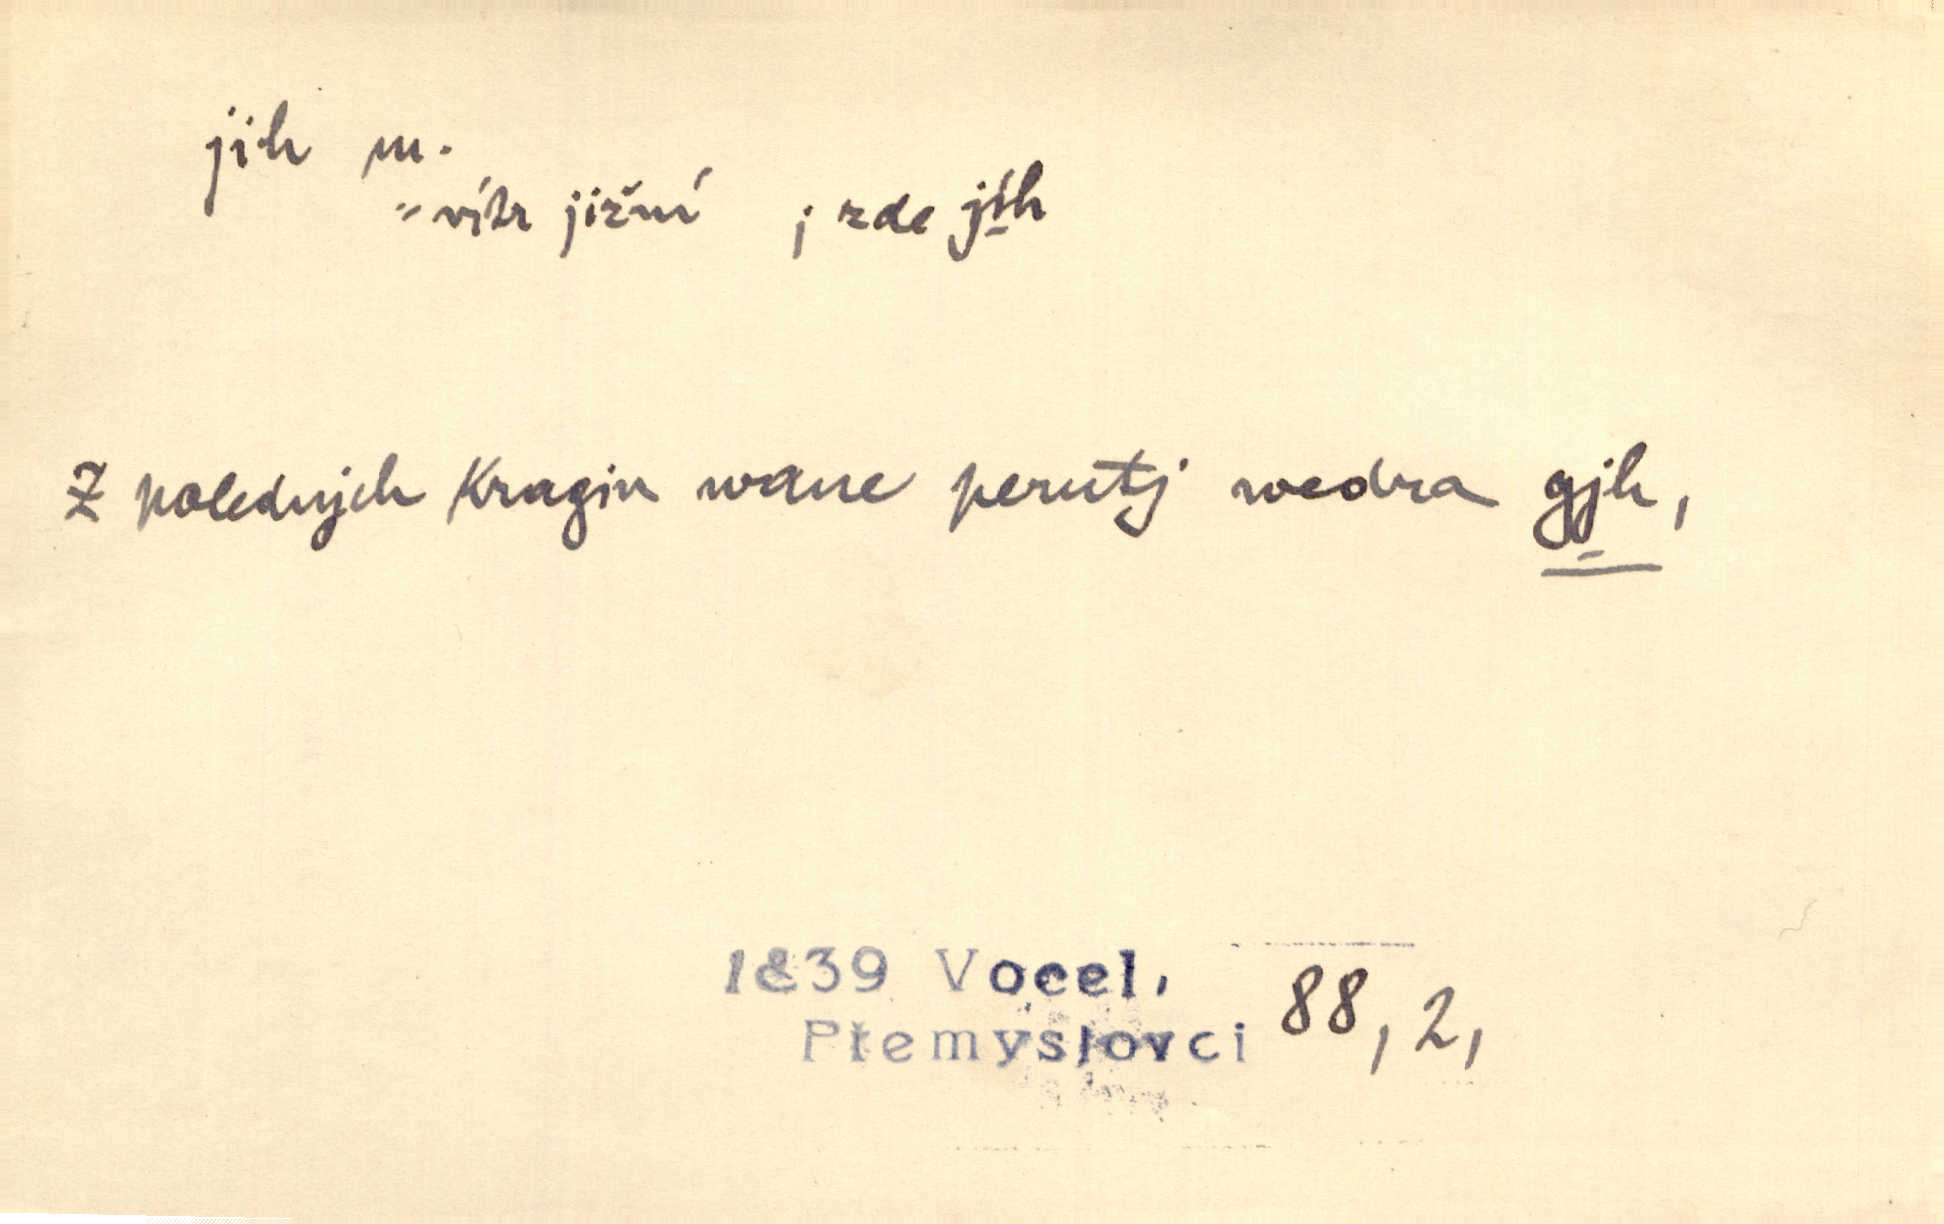 jih m.
= vítr jižní ; zde jíh
Z polednjch Kragin wane perutj wedra gjh,
1839 Vocel,
Přemyslovci 88, 2,